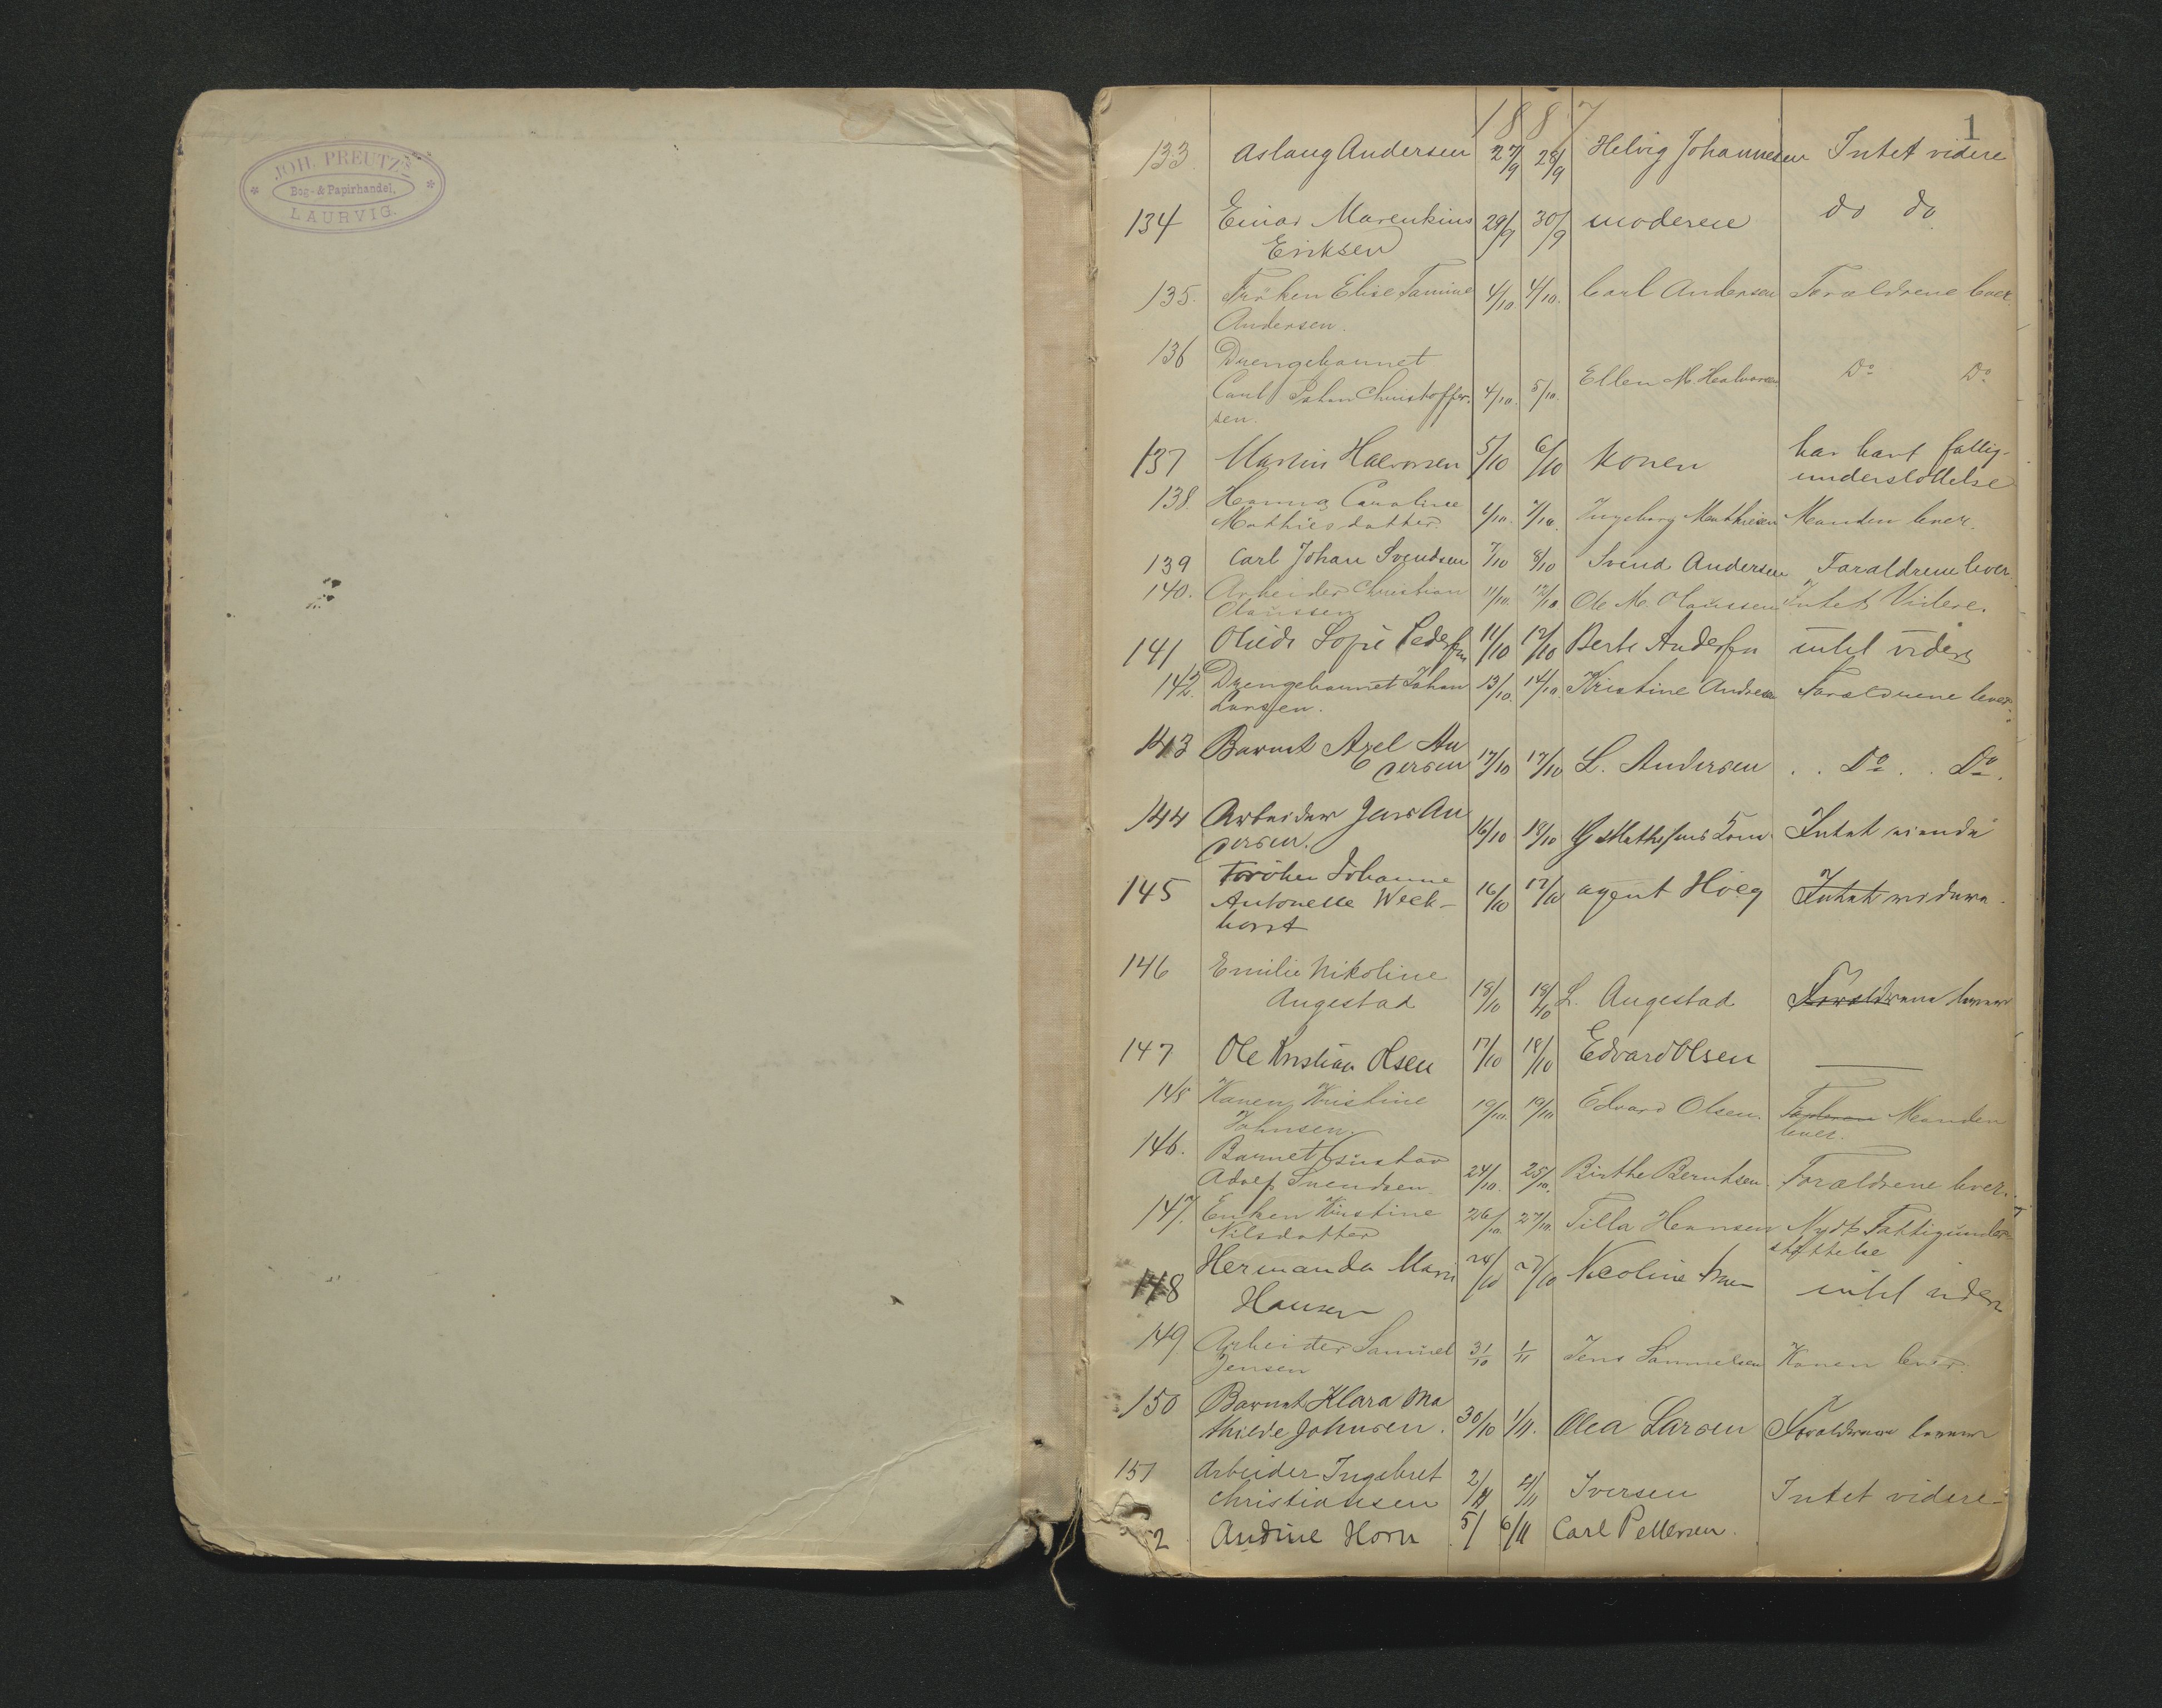 JOH. PREUTZ'S
Bog- & Papirhandel,
LAURVIG.
1887
1
133 Aslaug Andersen 27/9 28/9 Helvig Johannesen Intet videre
134 Einar Marenkius 29/9 30/9 moderen do do
Eriksen
135. Fröken Elise Tamine 4/10 4/10. Carl Andersen Foraldrene lever
Andersen.
136 Drengebarnet
Carl Johan Christoffer- 4/10. 5/10. Ellen M. Halvorsen Do Do
sen.
137 Martin Halvorsen 5/10 6/10 konen har havt fattig-
understöttelse
138. Hanna Caroline
Mathisdatter 6/10. 7/10. Ingeborg Mathisen Manden lever.
139 Carl Johan Svendsen 7/10 8/10 Svend Andersen Foraldrene lever
140. Arbeider Christian 11/10. 12/10 Ole M. Olaussen Intet Videre.
Olaussen
141 Sofie Pedersen 11/10 12/10 Berte Andersen intet videre
142. Drengebarnet Johan 13/10. 14/10. Kristine Andersen Foraldrene lever
Larssen.
143 Barnet Axel An
dersen 17/10 17/10 L. Andersen . . Do . . Do.
144 Arbeider Jens An
dersen. 16/10 18/10 Intet
145 Fröken Johanne
Antonette Week- 16/10 17/10 agent Höeg Intet videre.
horst
146 Emilie Nikoline
Angestad 18/10 19/10 L. Angestad Foraldrene lever
147 Ole Kristian Olsen 17/10 18/10 Edvard Olsen —
148 Konen Kristine 19/10. 19/10 Edvard Olsen. Manden
Johnsen. lever.
146. Barnet Gustav
Adolf Svendsen 24/10. 25/10. Birthe Berntsen. Foraldrene lever.
147. Enken Kirstine 26/10. 27/10. Tilla Hansen Nydt Fattigunder-
Nilsdatter støttelse
148 Hermanda Marie 27/10 Nicoline intet videre
Hansen
149 Arbeider Samuel 31/10 1/11 Jens Sammelsen Konen lever.
Jensen
150 Barnet Klara Ma
thilde Johnsen. 30/10 1/11. Olea Larsen Foraldrene lever
151 Arbeider Ingebret 2/11 4/11 Iversen Intet videre
Christiansen
2 Andine Horn 5/ 6/11 Carl Pettersen.